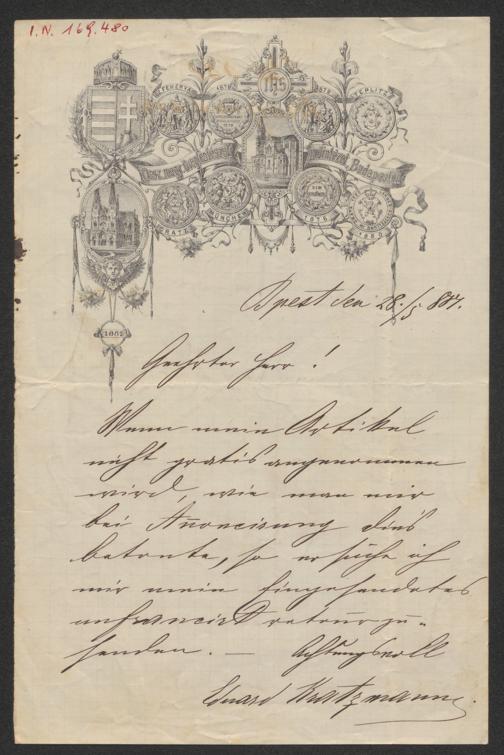 I.N. 169.480
1879
TEPLITZ
IHS
Budapest
GRATZ
MÜNCHEN
1876
1880
1882
Bpest den 28./5. 884.
Geehrter Herr!
Wenn mein Artikel
nicht gratis angenommen
wird, wie man mir
bei Anoncirung dies
betonte, so ersuche ich
mir mein Eingesendetes
unfrancirt retour zu-
senden. — Achtungsvoll
Eduard Kratzmann